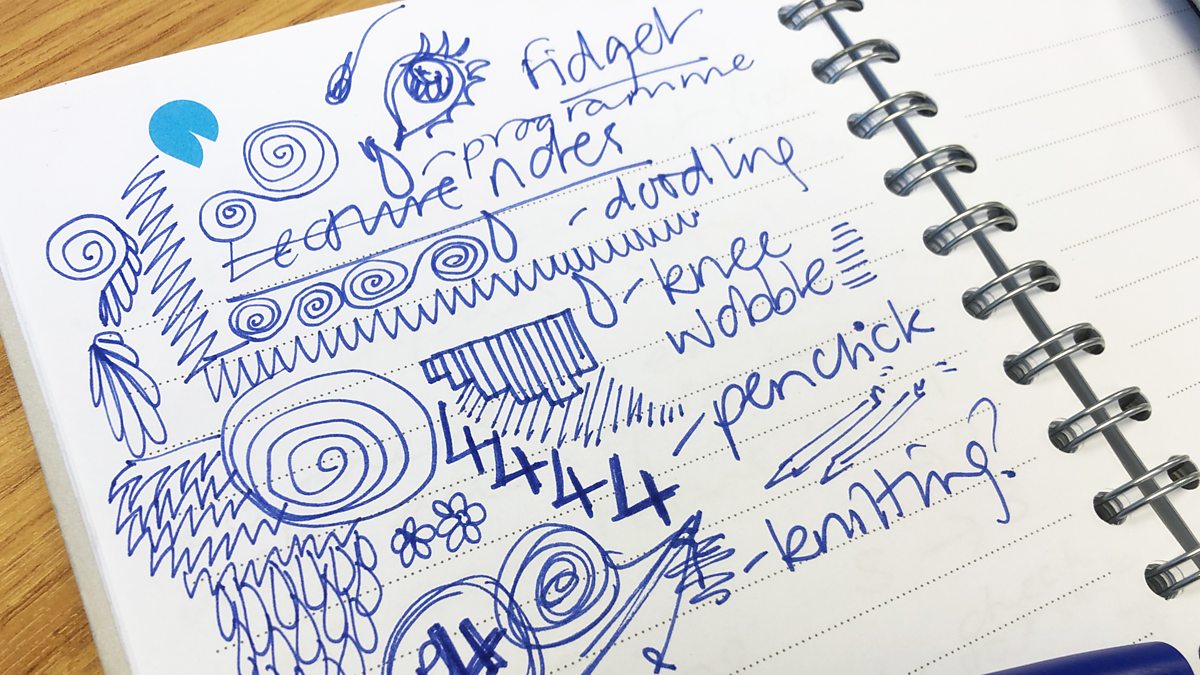 Fidget
- programme
Lecture notes
- doodling
- knee
wobble
- pen click
4444
- knitting?
94